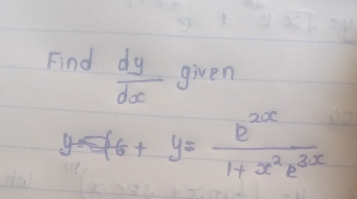 Find dy/dx given
y = e^{2x} / (1 + x² e^{3x})